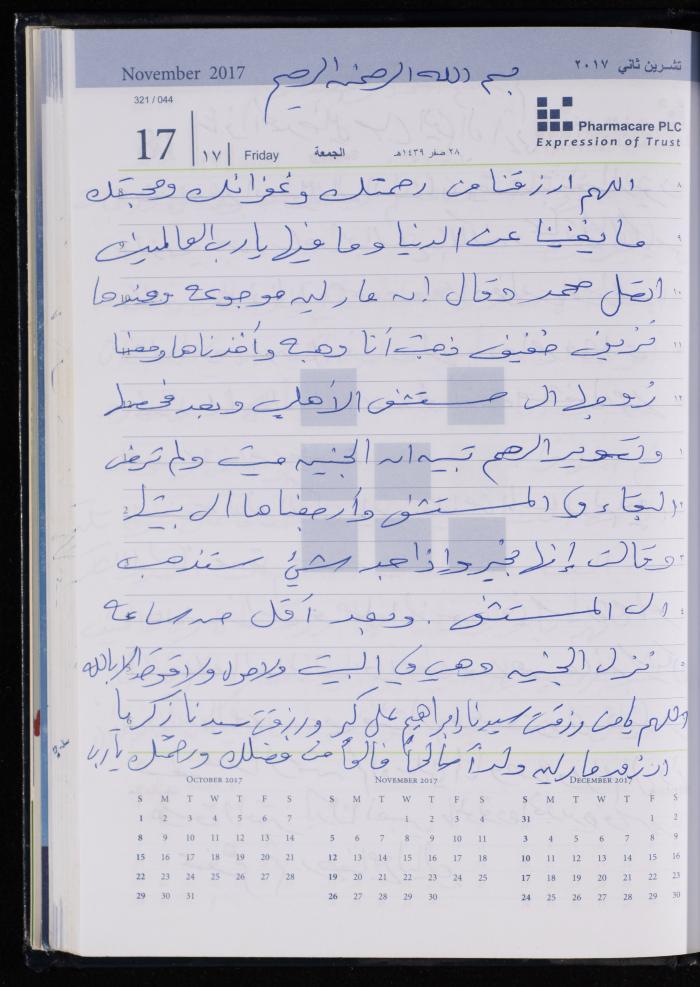 November 2017
بسم الله الرحمن الرحيم
تشرين ثاني ٢٠١٧
321 / 044
17 | ١٧ | Friday الجمعة ٢٨ صفر ١٤٣٩هـ
Pharmacare PLC
Expression of Trust
اللهم ارزقنا من رحمتك وغفرانك ومحبتك
ما يغنينا عن الدنيا وما فيها يا رب العالمين
اتصل محمد وقال إن مارلين موجوعة وعندها
نزيف خفيف ذهبت أنا وهبة وأخذناها ومعنا
زوجها الى مستشفى الأهلي وبعد فحصها
وتصوير الرحم تبين ان الجنين ميت ولم ترض
البقاء في المستشفى وأرجعناها الى بيتها
وقالت إنها بخير وإذا جد شيء ستذهب
الى المستشفى . وبعد أقل من ساعة
نزل الجنين وهي في البيت ولا حول ولا قوة إلا بالله
اللهم يا من رزقت سيدنا إبراهيم على كبر ورزقت سيدنا زكريا
ارزق مارلين ولداً صالحاً فالحاً من فضلك ورحمتك يا رب
OCTOBER 2017 NOVEMBER 2017 DECEMBER 2017
S M T W T F S S M T W T F S S M T W T F S
1 2 3 4 5 6 7 1 2 3 4 31 1 2
8 9 10 11 12 13 14 5 6 7 8 9 10 11 3 4 5 6 7 8 9
15 16 17 18 19 20 21 12 13 14 15 16 17 18 10 11 12 13 14 15 16
22 23 24 25 26 27 28 19 20 21 22 23 24 25 17 18 19 20 21 22 23
29 30 31 26 27 28 29 30 24 25 26 27 28 29 30